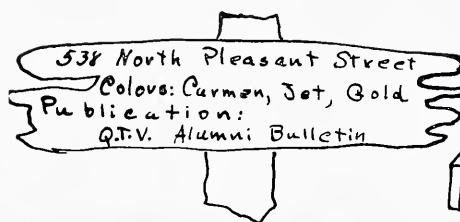 538 North Pleasant Street
Colors: Carmen, Jet, Gold
Publication:
Q.T.V. Alumni Bulletin